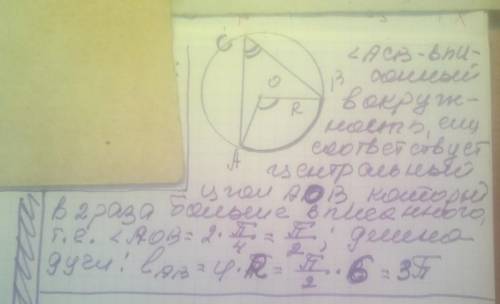 C
O
B
R
A
∠ACB – впи-
санный
в окруж-
ность, ему
соответствует
центральный
угол AOB который
в 2 раза больше вписанного,
т.е. ∠AOB = 2 · π/4 = π/2; длина
дуги: l_AB = φ · R = π/2 · 6 = 3π